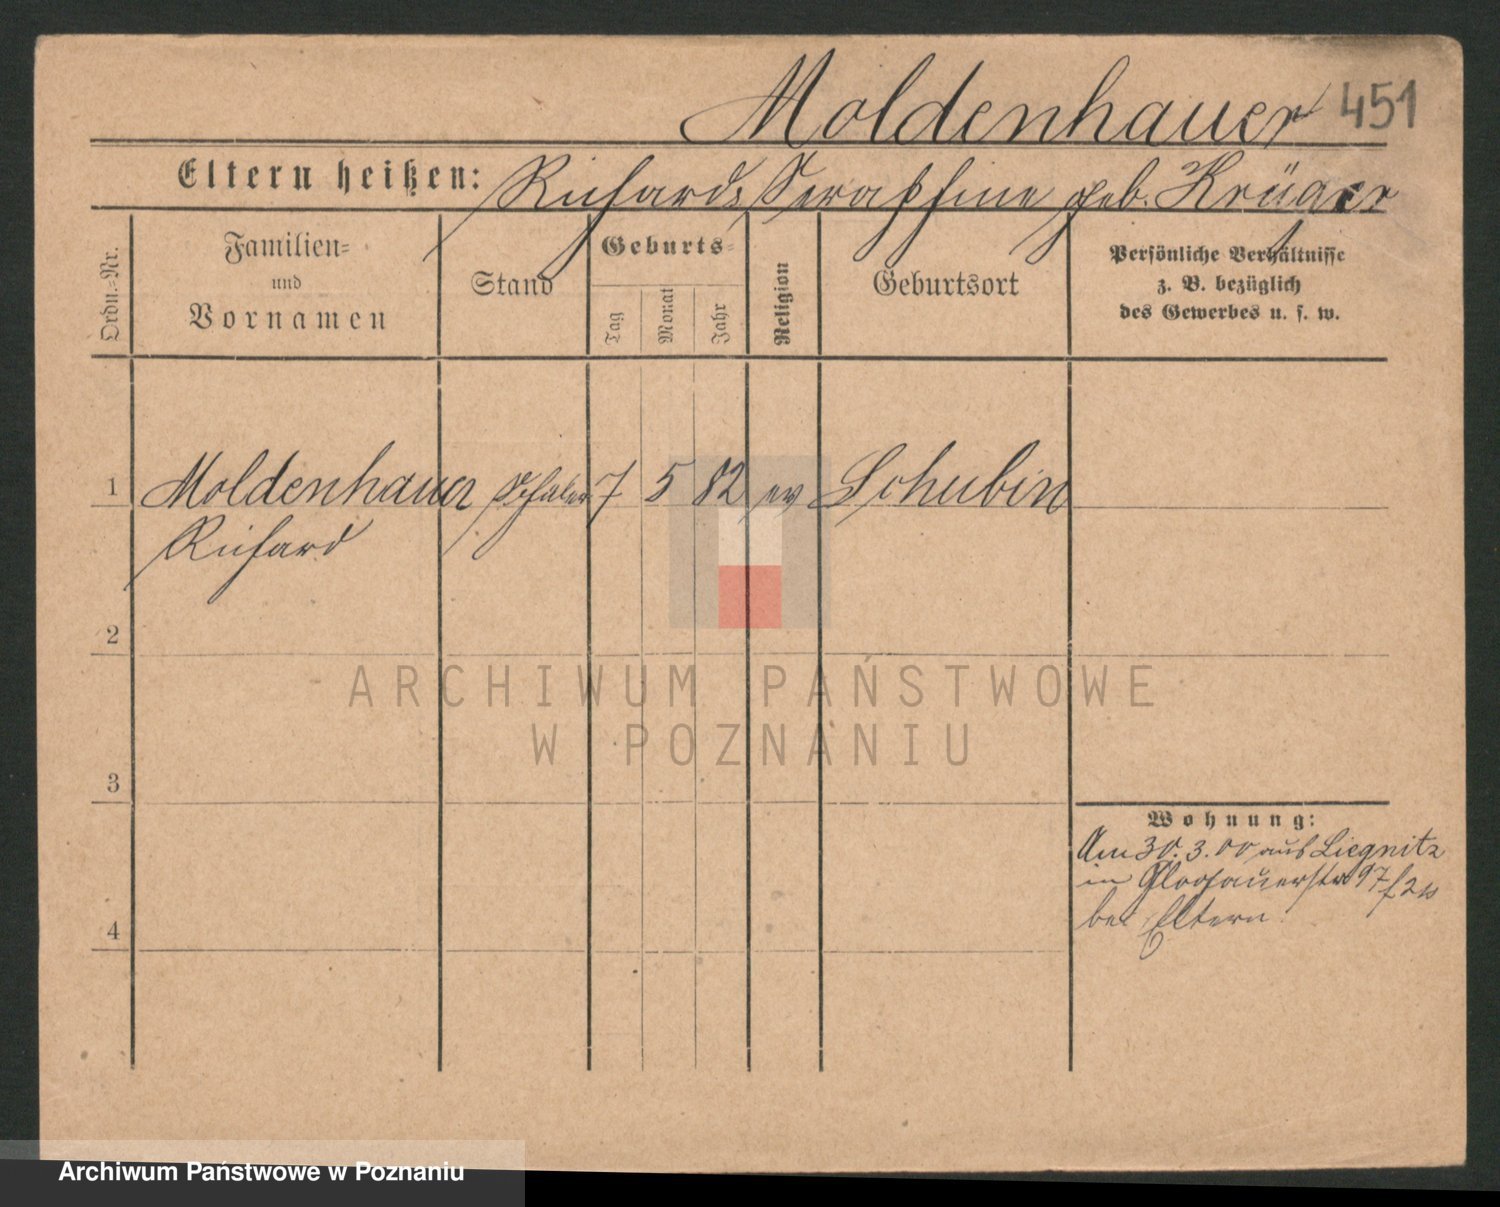 Moldenhauer 451
Eltern heißen: Richard, Seraphine geb. Krüger
Ordn.-Nr.
Familien-
und
Vornamen
Stand
Geburts-
Tag
Monat
Jahr
Religion
Geburtsort
Persönliche Verhältnisse
z. B. bezüglich
des Gewerbes u. s. w.
1 Moldenhauer Schüler 7 5 82 ev Schubin
Richard
2
ARCHIWUM PAŃSTWOWE
W POZNANIU
3
Wohnung:
Am 30.3.00 aus Liegnitz
in Glogauerstr 97
bei Eltern
4
Archiwum Państwowe w Poznaniu